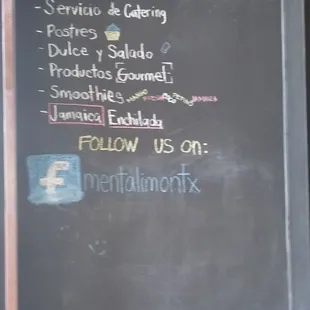 - Servicio de Catering
- Postres
- Dulce y Salado
- Productos Gourmet
- Smoothies
- Jamaica Enchilada
FOLLOW US on:
f mentalimontx